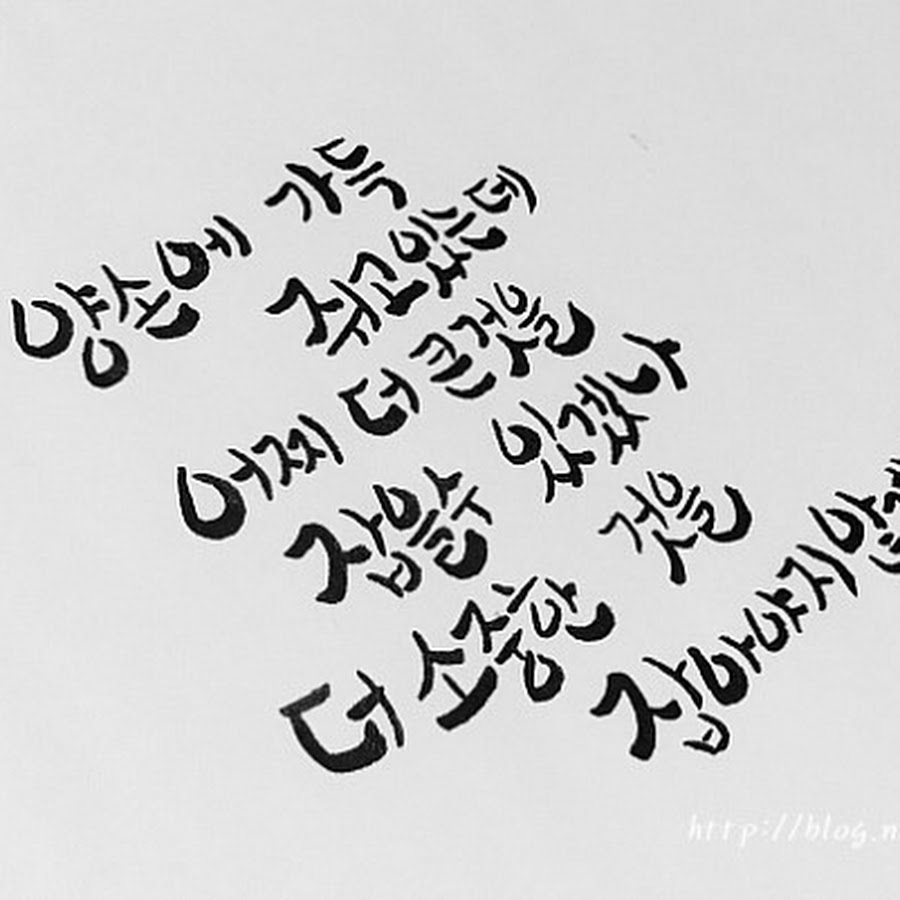 양손에 가득
쥐고있는데
어찌 더 큰것을
잡을수 있겠나
더 소중한 것을
잡아야지
http://blog.n